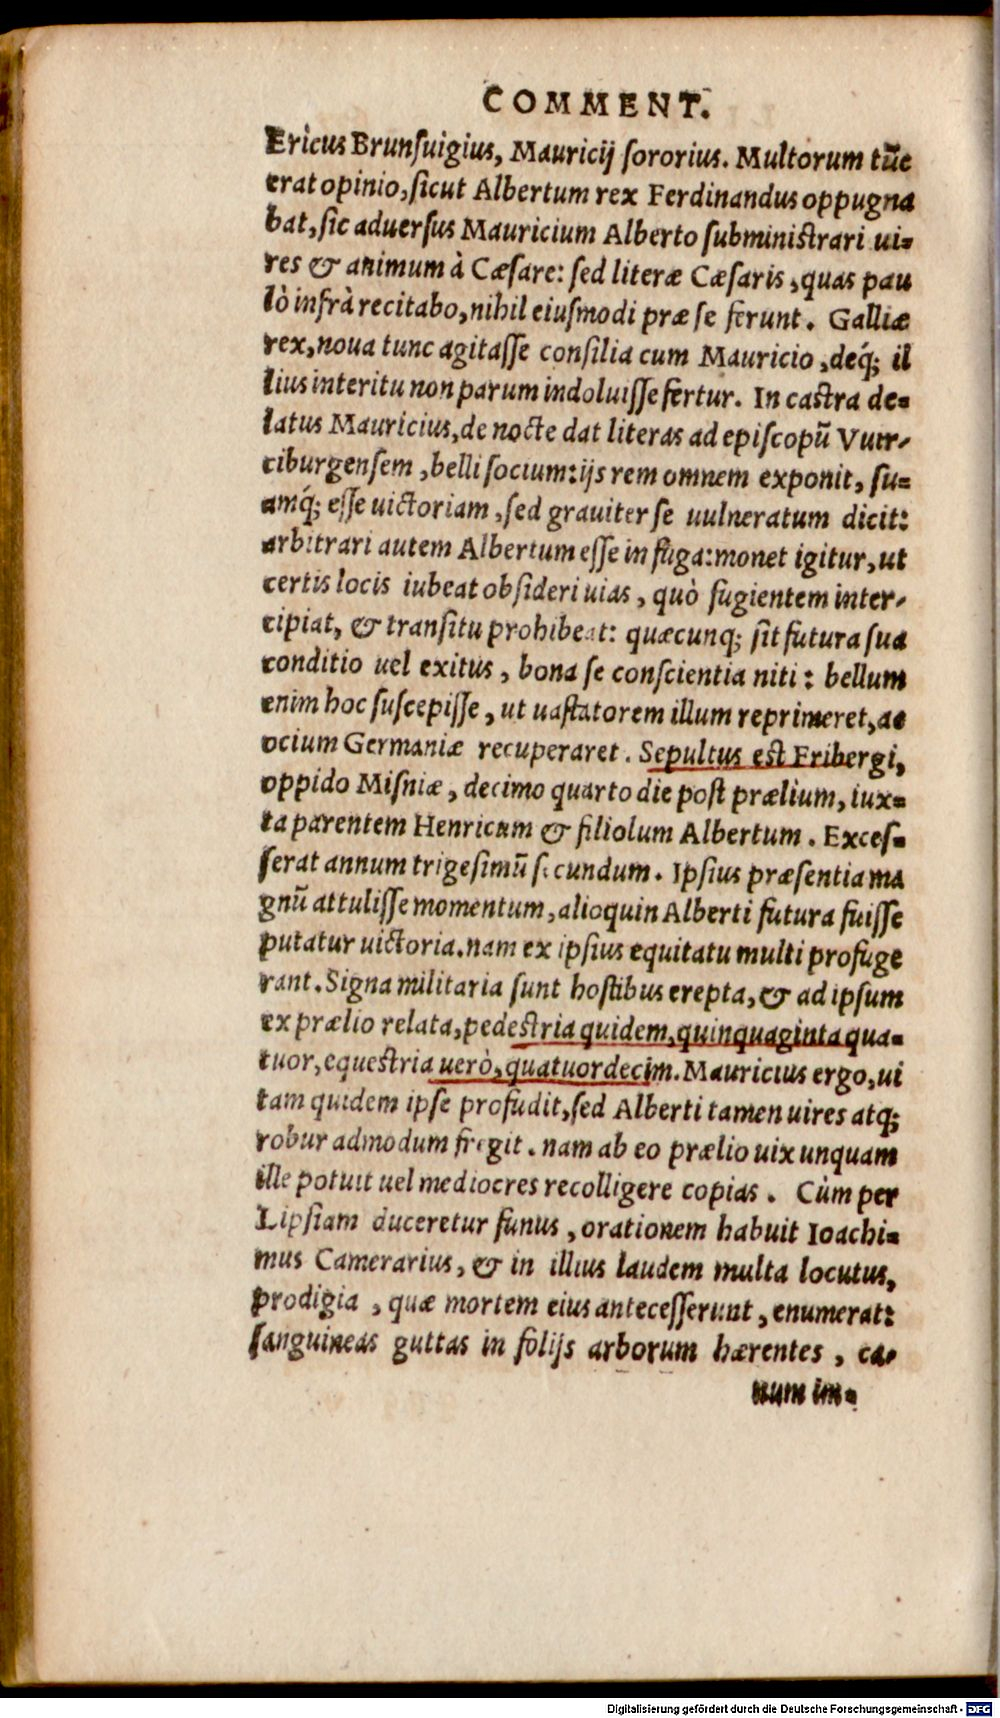 COMMENT.
Ericus Brunſuigius, Mauricij ſororius. Multorum tūc
erat opinio, ſicut Albertum rex Ferdinandus oppugna
bat, ſic aduerſus Mauricium Alberto ſubminiſtrari ui-
res & animum à Cæſare: ſed literæ Cæſaris, quas pau
lò infrà recitabo, nihil eiuſmodi præ ſe ferunt. Galliæ
rex, noua tunc agitaſſe conſilia cum Mauricio, deq́; il
lius interitu non parum indoluiſſe fertur. In caſtra de-
latus Mauricius, de nocte dat literas ad epiſcopū Vuir-
ciburgenſem, belli ſocium: ijs rem omnem exponit, ſu-
amq́; eſſe uictoriam, ſed grauiter ſe uulneratum dicit:
arbitrari autem Albertum eſſe in fuga: monet igitur, ut
certis locis iubeat obſideri uias, quò fugientem inter-
cipiat, & tranſitu prohibeat: quæcunq; ſit futura ſua
conditio uel exitus, bona ſe conſcientia niti: bellum
enim hoc ſuſcepiſſe, ut uaſtatorem illum reprimeret, ac
ocium Germaniæ recuperaret. Sepultus eſt Fribergi,
oppido Miſniæ, decimo quarto die poſt prælium, iux-
ta parentem Henricum & filiolum Albertum. Exceſ-
ſerat annum trigeſimū ſecundum. Ipſius præſentia ma
gnū attuliſſe momentum, alioquin Alberti futura fuiſſe
putatur uictoria. nam ex ipſius equitatu multi profuge
rant. Signa militaria ſunt hoſtibus erepta, & ad ipſum
ex prælio relata, pedeſtria quidem, quinquaginta qua-
tuor, equeſtria uerò, quatuordecim. Mauricius ergo, ui
tam quidem ipſe profudit, ſed Alberti tamen uires atq;
robur admodum fregit. nam ab eo prælio uix unquam
ille potuit uel mediocres recolligere copias. Cùm per
Lipſiam duceretur funus, orationem habuit Ioachi-
mus Camerarius, & in illius laudem multa locutus,
prodigia, quæ mortem eius anteceſſerunt, enumerat:
ſanguineas guttas in folijs arborum hærentes, ca-
num im-
Digitalisierung gefördert durch die Deutsche Forschungsgemeinschaft - DFG